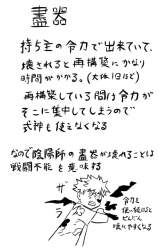 霊器
持ち主の令力で出来ていて、
壊されると再構築にかなり
時間がかかる。(大体1日ほど)
再構築している間は令力が
そこに集中してしまうので
式神も使えなくなる
なので陰陽師の霊器が壊れることは
戦闘不能を意味する
令力を
使い続けると
だんだん
眠くなる